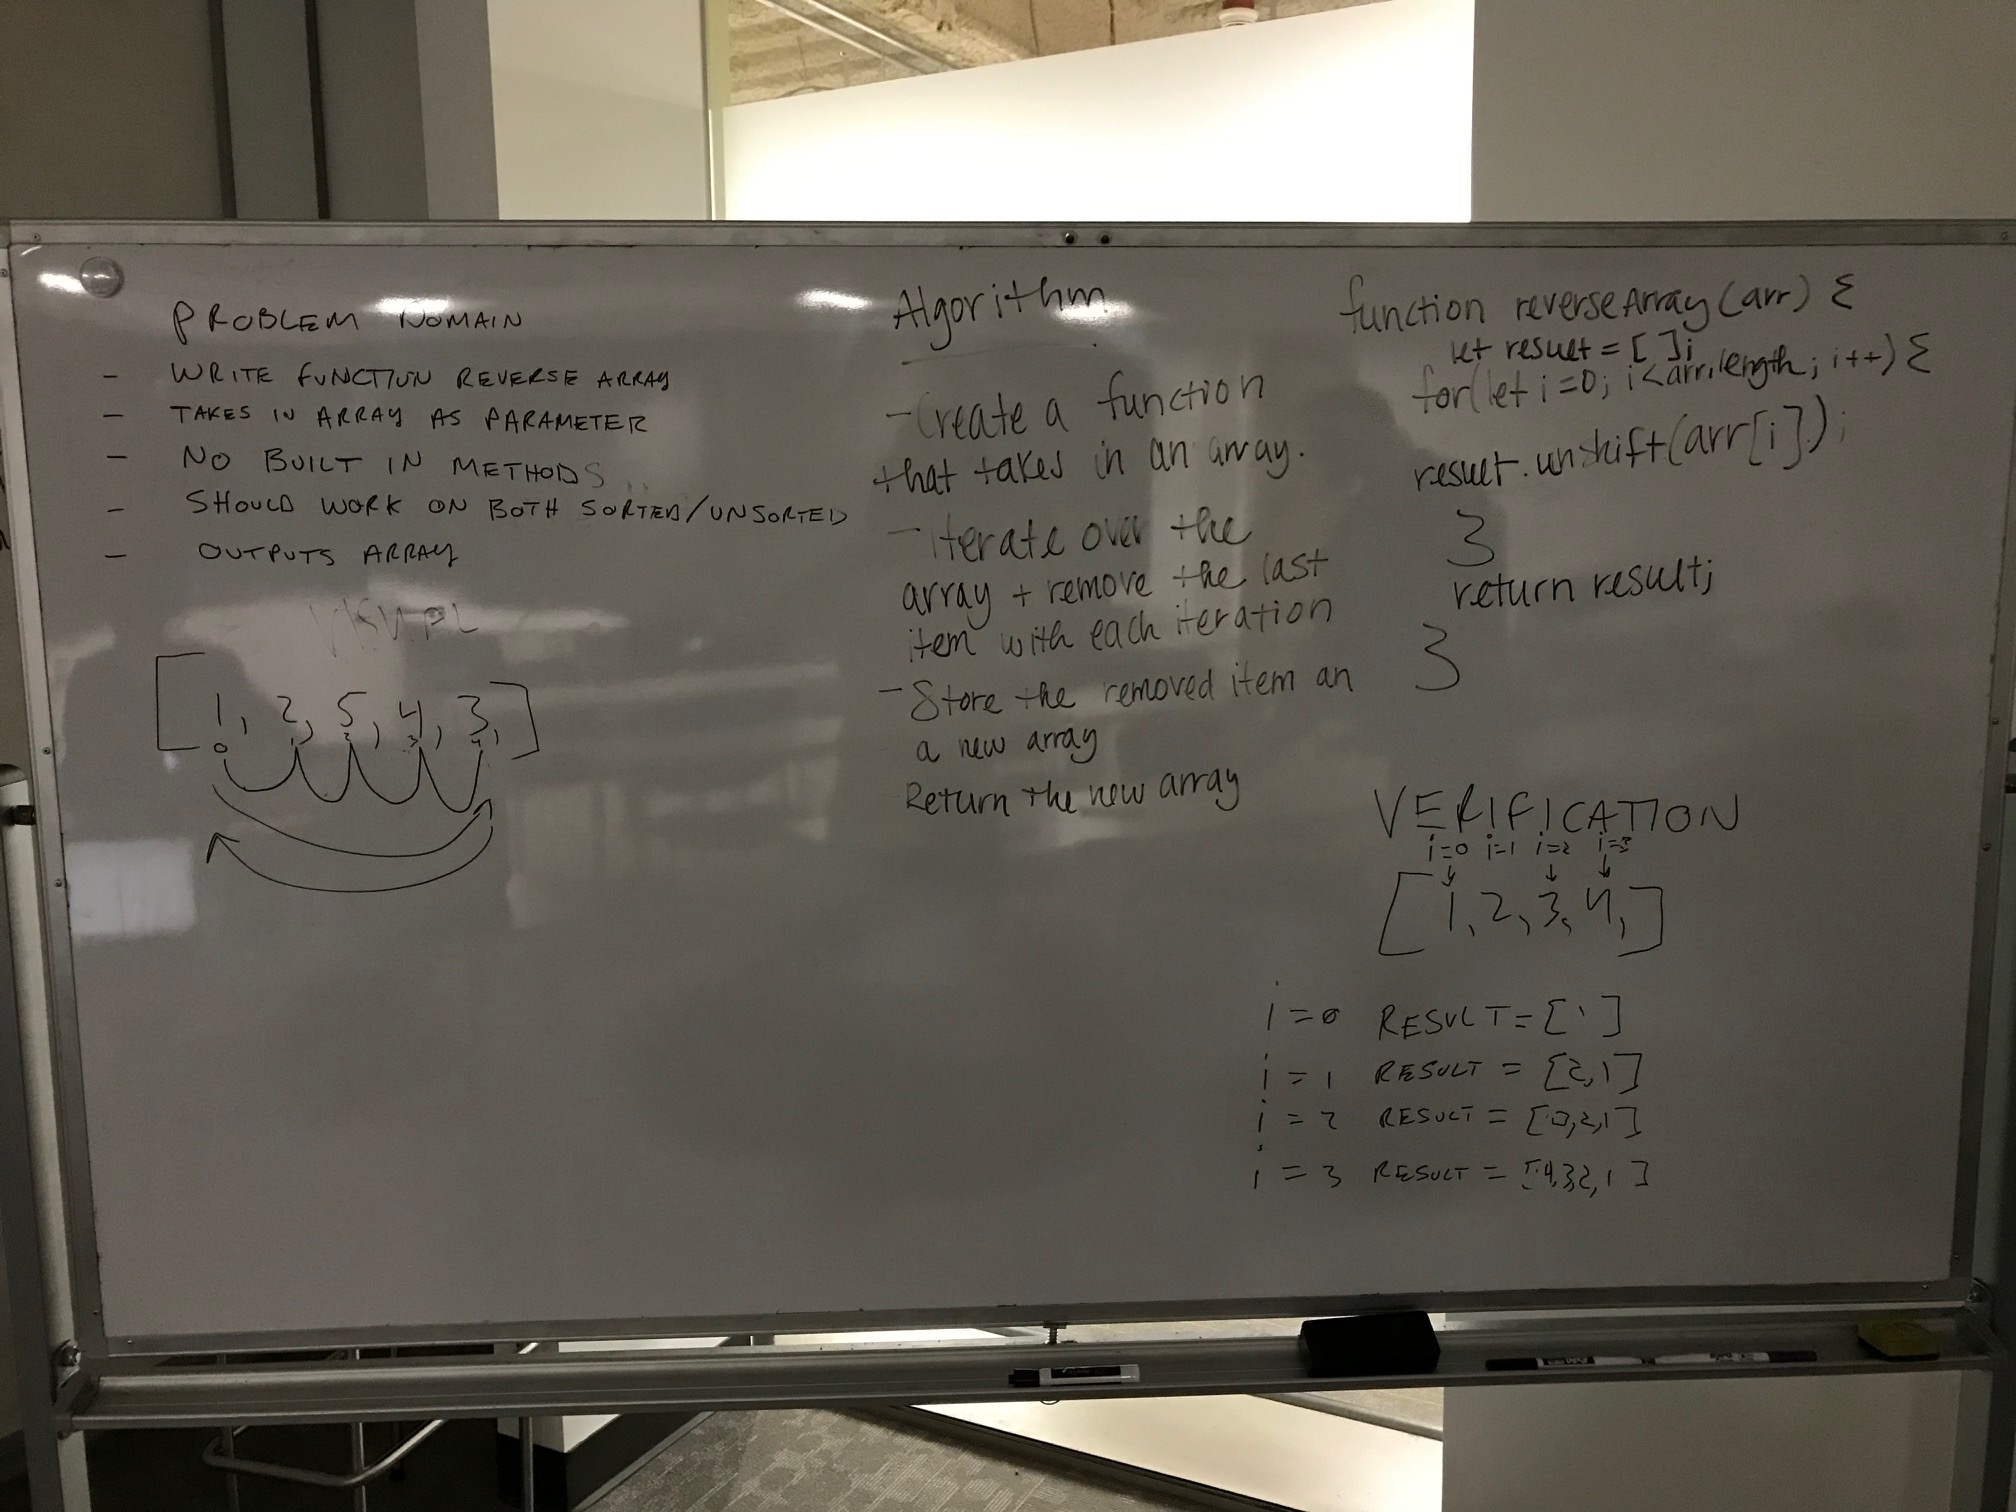 PROBLEM DOMAIN
- WRITE FUNCTION REVERSE ARRAY
- TAKES IN ARRAY AS PARAMETER
- NO BUILT IN METHODS
- SHOULD WORK ON BOTH SORTED/UNSORTED
- OUTPUTS ARRAY
VISUAL
[1, 2, 5, 4, 3,]
0 1 2 3 4
Algorithm
- Create a function
that takes in an array.
- Iterate over the
array + remove the last
item with each iteration
- Store the removed item an
a new array
Return the new array
function reverseArray(arr) {
let result = [ ];
for(let i=0; i<arr.length; i++) {
result.unshift(arr[i]);
}
return result;
}
VERIFICATION
i=0 i=1 i=2 i=3
[1, 2, 3, 4,]
i=0 RESULT=[1]
i=1 RESULT = [2,1]
i=2 RESULT = [3,2,1]
i=3 RESULT = [4,3,2,1]